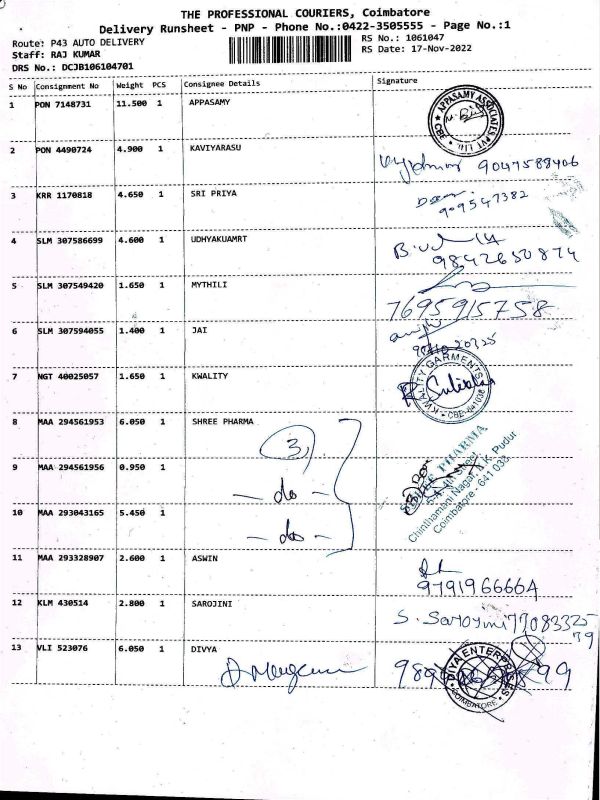 THE PROFESSIONAL COURIERS, Coimbatore
Delivery Runsheet - PNP - Phone No.:0422-3505555 - Page No.:1
Route: P43 AUTO DELIVERY RS No.: 1061047
Staff: RAJ KUMAR RS Date: 17-Nov-2022
DRS No.: DCJB106104701
S No Consignment No Weight PCS Consignee Details Signature
1 PON 7148731 11.500 1 APPASAMY
APPASAMY ASSOCIATES PVT. LTD. CBE
2 PON 4490724 4.900 1 KAVIYARASU
9047588406
3 KRR 1170818 4.650 1 SRI PRIYA
4 SLM 307586699 4.600 1 UDHYAKUAMRT
9842650874
5 SLM 307549420 1.650 1 MYTHILI
7695915758
6 SLM 307594055 1.400 1 JAI
7 NGT 40025057 1.650 1 KWALITY
KWALITY GARMENTS CBE-641038
8 MAA 294561953 6.050 1 SHREE PHARMA
3
9 MAA 294561956 0.950 1
- do -
10 MAA 293043165 5.450 1
- do -
SHREE PHARMA
Street,
Chinthamani Nagar, K.K. Pudur
Coimbatore - 641 038
11 MAA 293328907 2.600 1 ASWIN
9791966664
12 KLM 430514 2.800 1 SAROJINI
S. Sarojini 77083325
79
13 VLI 523076 6.050 1 DIVYA
DIYA ENTERPRISES COIMBATORE